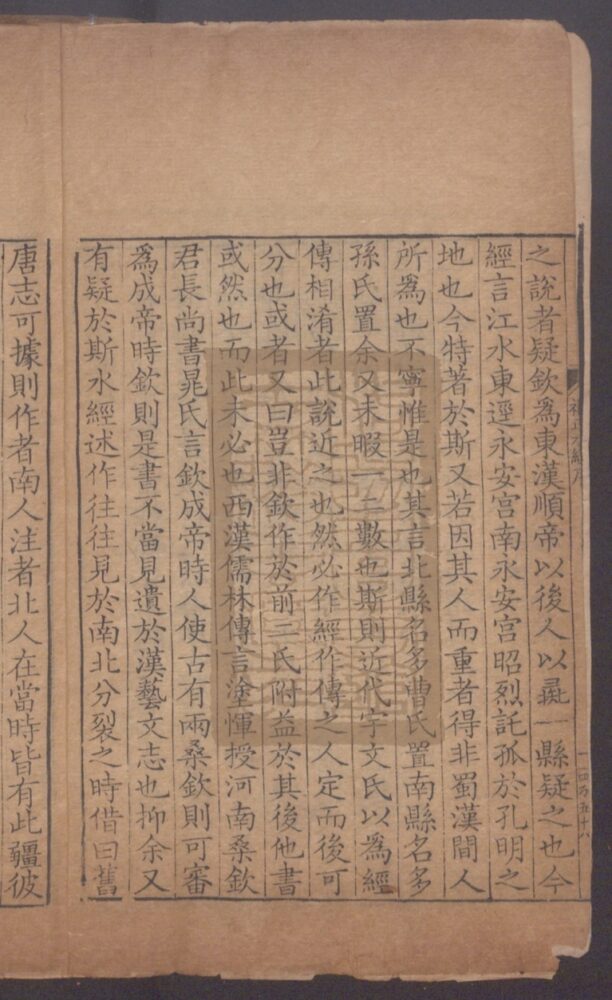 之說者疑欽爲東漢順帝以後人以彘一縣疑之也今
經言江水東逕永安宮南永安宮昭烈託孤於孔明之
地也今特著於斯又若因其人而重者得非蜀漢間人
所爲也不寧惟是也其言北縣名多曹氏置南縣名多
孫氏置余又未暇一二數也斯則近代宇文氏以爲經
傳相淆者此說近之也然必作經作傳之人定而後可
分也或者又曰豈非欽作於前二氏附益於其後他書
或然也而此未必也西漢儒林傳言塗惲授河南桑欽
君長尚書晁氏言欽成帝時人使古有兩桑欽則可審
爲成帝時欽則是書不當見遺於漢藝文志也抑余又
有疑於斯水經述作往往見於南北分裂之時借曰舊
唐志可據則作者南人注者北人在當時皆有此疆彼